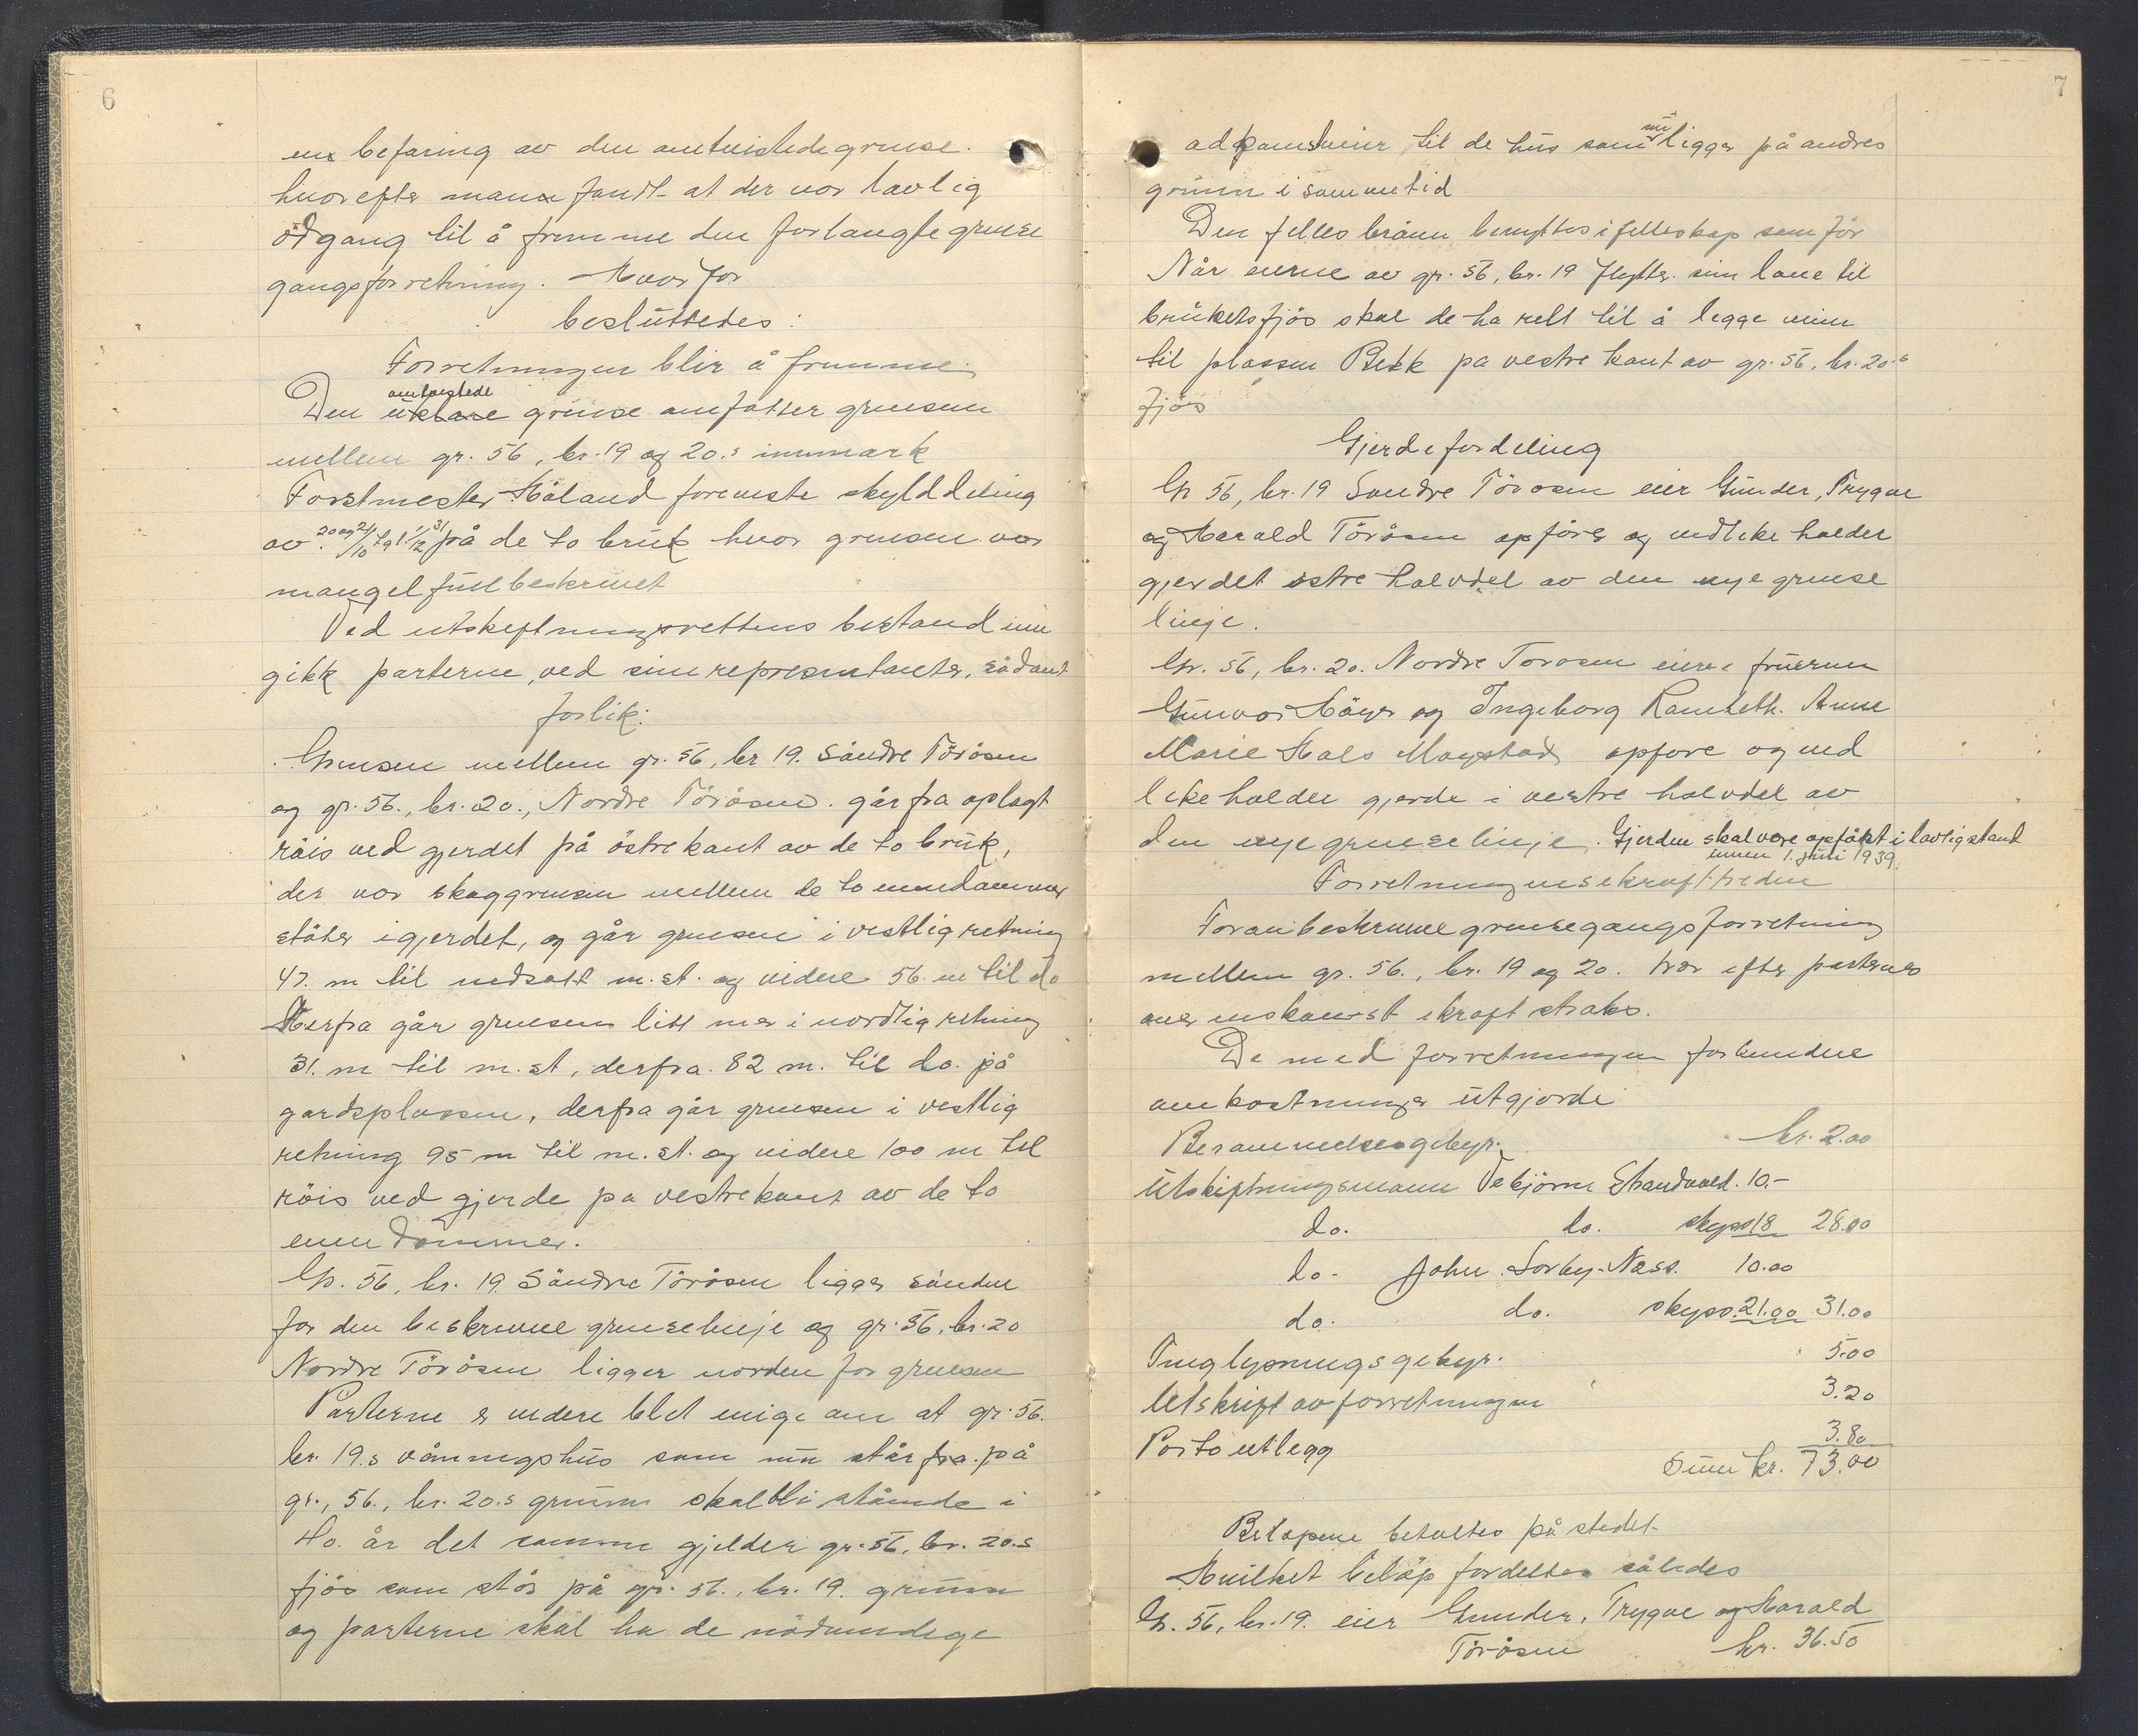 6
en befaring av den omtvistede grense.
hvorefter man fandt at der var lavlig
adgang til å fremme den forlangte grense
gangsforretning. Hvorfor
besluttedes:
Forretningen blir å fremme.
omtvistede
Den uklare grense omfatter grensen
mellem gr. 56, br. 19 og 20.s innmark
Forstmester Håland foreviste skylddeling
av 20 og 21/10 tgl 31/12 på de to bruk hvor grensen var
mangelfull beskrevet
Ved utskiftningsrettens bistand inn
gikk parterne, ved sine representanter, sådant
forlik:
Grensen mellem gr. 56, br 19. Söndre Töråsen
og gr. 56., br. 20., Nordre Töråsen. går fra oplagt
röis ved gjerdet på östre kant av de to bruk,
der vor skoggrensen mellem de to eiendommer
stöter i gjerdet, og går grensen i vestlig retning
47. m til nedsatt m.st. og videre 56. m til do
Herfra går grensen litt mer i nordlig retning
31. m til m.st, derfra. 82 m. til do. på
gardsplassen, derfra går grensen i vestlig
retning 95 m til m.st. og videre 100 m til
röis ved gjerde pa vestre kant av de to
eiendommer.
Gr. 56, br. 19 Söndre Töråsen ligger sönden
for den beskrevne grenselinje og gr. 56, br. 20
Nordre Töråsen ligger norden for grensen
Parterne er videre blit enige om at gr. 56.
br. 19.s våningshus som nu står fra. på
gr., 56., br. 20.s grunn skal bli stående i
40. år det samme gjelder gr. 56, br. 20.s
fjös som står på gr. 56., br. 19. grunn
og parterne skal ha de nödvendige
7
adkomstveier til de hus som nu ligger på andres
grunn i samme tid
Den felles brönn benyttes i felleskap som för
Når eierne av gr. 56, br. 19 flytter sin låve til
brukets fjös skal de ha rett til å legge veien
til plassen Bekk pa vestre kant av gr. 56, br. 20.s
fjös
Gjerdefordeling
Gr 56, br. 19 Söndre Töråsen eier Gunder, Trygve
og Harald Töråsen opförer og vedlikeholder
gjerdet östre halvdel av den nye grense
linje.
Gr. 56, br. 20. Nordre Toråsen eiere fruerne
Gunvor Höyer og Ingeborg Ramseth. Anne
Marie Hals Mogstad, opfore og ved
likeholder gjerde i vestre halvdel av
den nye grenselinje. Gjerden skal være opfört i lavlig stand
innen 1. juni 1939.
Forretningens ikrafttreden
Foranbeskrevne grensegangsforretning
mellem gr. 56., br. 19 og 20. trær efter parternes
overenskomst ikraft straks.
De med forretningen forbundne
omkostninger utgjorde
Berammelsesgebyr. kr. 2.00
Utskiftningsmann Tebjörn Strandvold. 10.-
do. do. skyss 18 28.00
do. John Sorby-Næss. 10.00
do. do. skyss. 21.00 31.00
Tinglysningsgebyr. 5.00
Utskrift av forretningen 3.20
Porto utlegg 3.80
Sum kr. 73.00
Belopene betaltes på stedet.
Hvilket belöp fordeltes således
Gr. 56, br. 19. eier Gunder, Trygve og Harald
Töråsen kr. 36.50